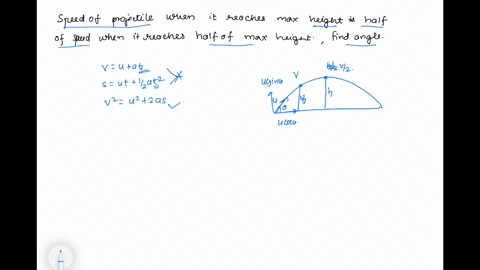 Speed of projectile when it reaches max height is half
of speed when it reaches half of max height., find angle.
v = u + at
s = ut + 1/2 at²
v² = u² + 2as
usinθ
u
θ
ucosθ
V
h/2
v/2
h